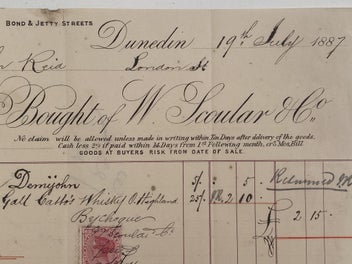 BOND & JETTY STREETS
Dunedin 19th July 1887
Reid London St
Bought of W. Scoular & Co
No claim will be allowed unless made in writing within Ten Days after delivery of the goods.
Cash less 2½ if paid within 14 Days from 1st Following month, or 3 Mos. Bill
GOODS AT BUYERS RISK FROM DATE OF SALE.
Demijohn 5/- 5 - Returned
Gall Catto's Whisky O. Highland 25/- 2 10
£ 2 15 .
Scoular & Co